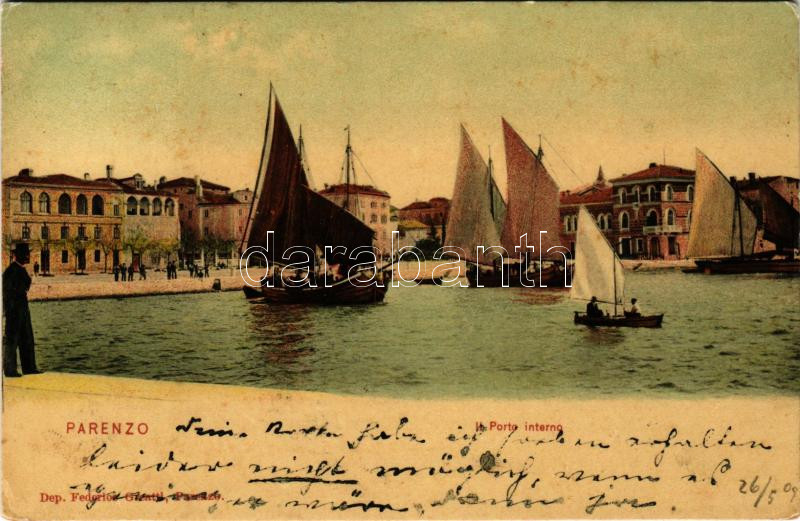 darabanth
PARENZO
Il Porto interno
Deine Karte habe ich soeben erhalten
leider nicht möglich, wenn es
wäre, denn
Dep. Federico Parenzo.
26/5 09